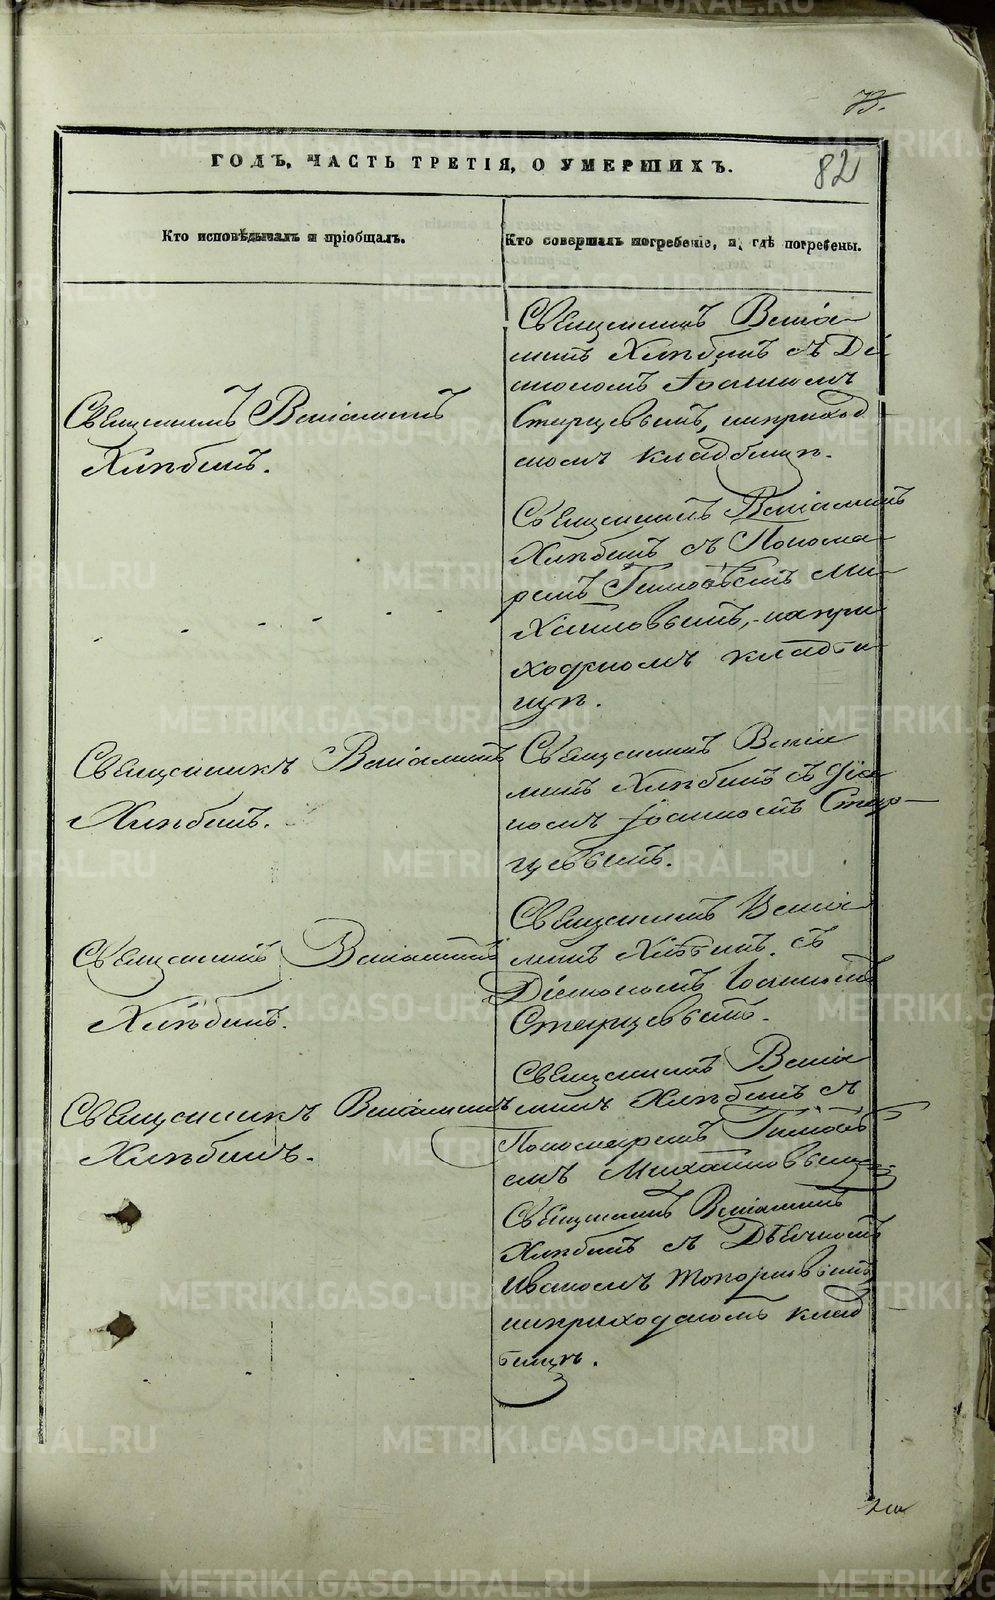 82
ГОДЪ, ЧАСТЬ ТРЕТІЯ, О УМЕРШИХЪ.
Кто исповѣдывалъ и пріобщалъ.
Кто совершалъ погребеніе, и, гдѣ погребены.
Священникъ Веніаминъ
Хлѣбинъ.
Священникъ Веніа-
минъ Хлѣбинъ съ Ді
акономъ Іоанномъ
Старцевымъ, наприход
номъ кладбищѣ.
Священникъ Веніаминъ
Хлѣбинъ съ Понома-
ремъ Ми-
хайловымъ, наприходномъ кладби
щѣ.
Священникъ Веніаминъ
Хлѣбинъ.
Священникъ Веніа
минъ Хлѣбинъ съ Діа
кономъ Іоанномъ Стар-
цевымъ.
Священникъ Веніаминъ
Хлѣбинъ.
Священникъ Веніа
минъ Хлѣбинъ. съ
Діакономъ Іоанномъ
Старцевымъ.
Священникъ Веніаминъ
Хлѣбинъ.
Священникъ Веніа
минъ Хлѣбинъ съ
Пономаремъ
Михайловымъ
Священникъ Веніаминъ
Хлѣбинъ съ Дьячкомъ
Иваномъ Топорковымъ
наприходномъ клад
бищѣ.
METRIKI.GASO-URAL.RU